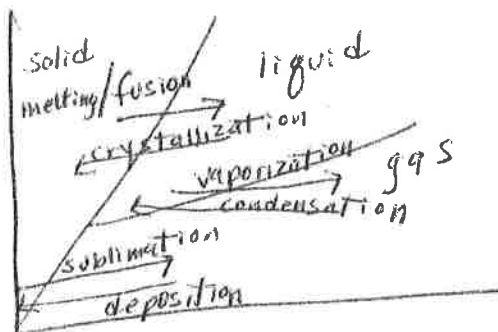 solid
liquid
melting/fusion
crystallization
vaporization
gas
condensation
sublimation
deposition